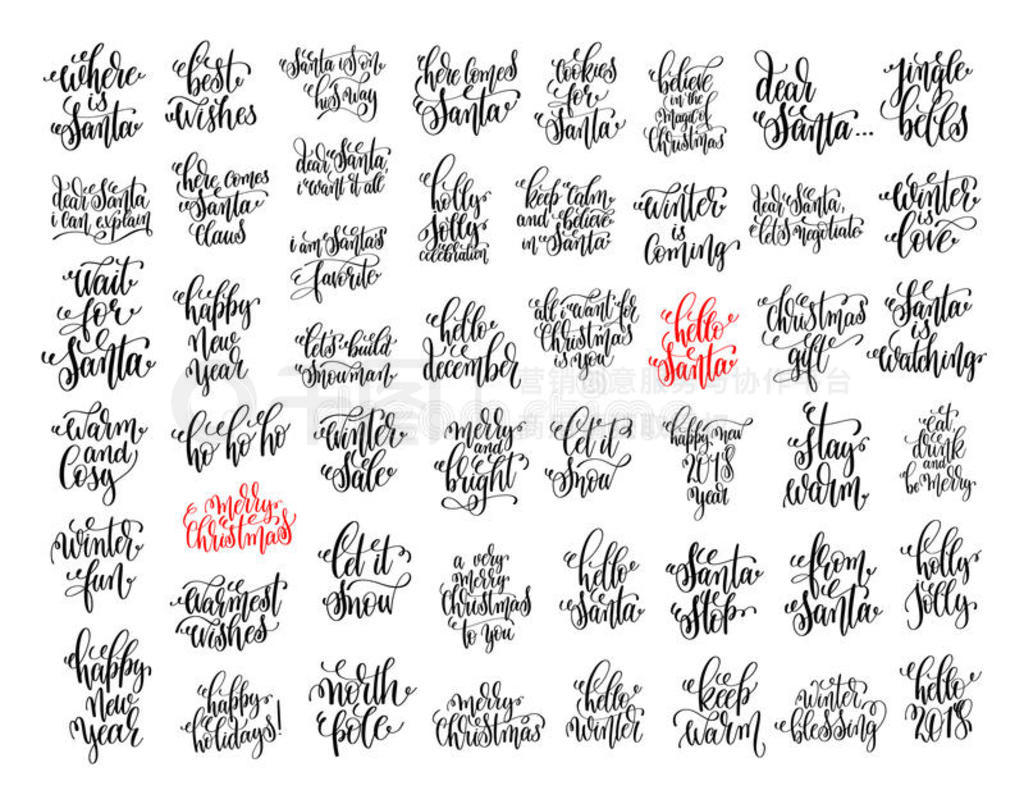 where
is
Santa
best
wishes
Santa is on
his way
here comes
Santa
cookies
for
Santa
believe
in the
magic of
Christmas
dear
Santa...
jingle
bells
dear Santa
i can explain
here comes
Santa
Claus
dear Santa,
i want it all
i am Santa's
favorite
holly
jolly
celebration
keep calm
and believe
in Santa
winter
is
coming
dear Santa,
let's negotiate
winter
is
love
wait
for
Santa
happy
New
Year
let's build
snowman
hello
december
all i want for
Christmas
is you
hello
Santa
christmas
gift
Santa
is
watching
warm
and
cosy
ho ho ho
winter
sale
merry
and
bright
let it
snow
happy new
2018
year
stay
warm
eat,
drink
and
be merry
merry
Christmas
winter
fun
warmest
wishes
let it
snow
a very
merry
Christmas
to you
hello
Santa
Santa
stop
from
Santa
holly
jolly
happy
New
Year
happy
holidays!
north
pole
merry
Christmas
hello
winter
keep
warm
winter
blessing
hello
2018